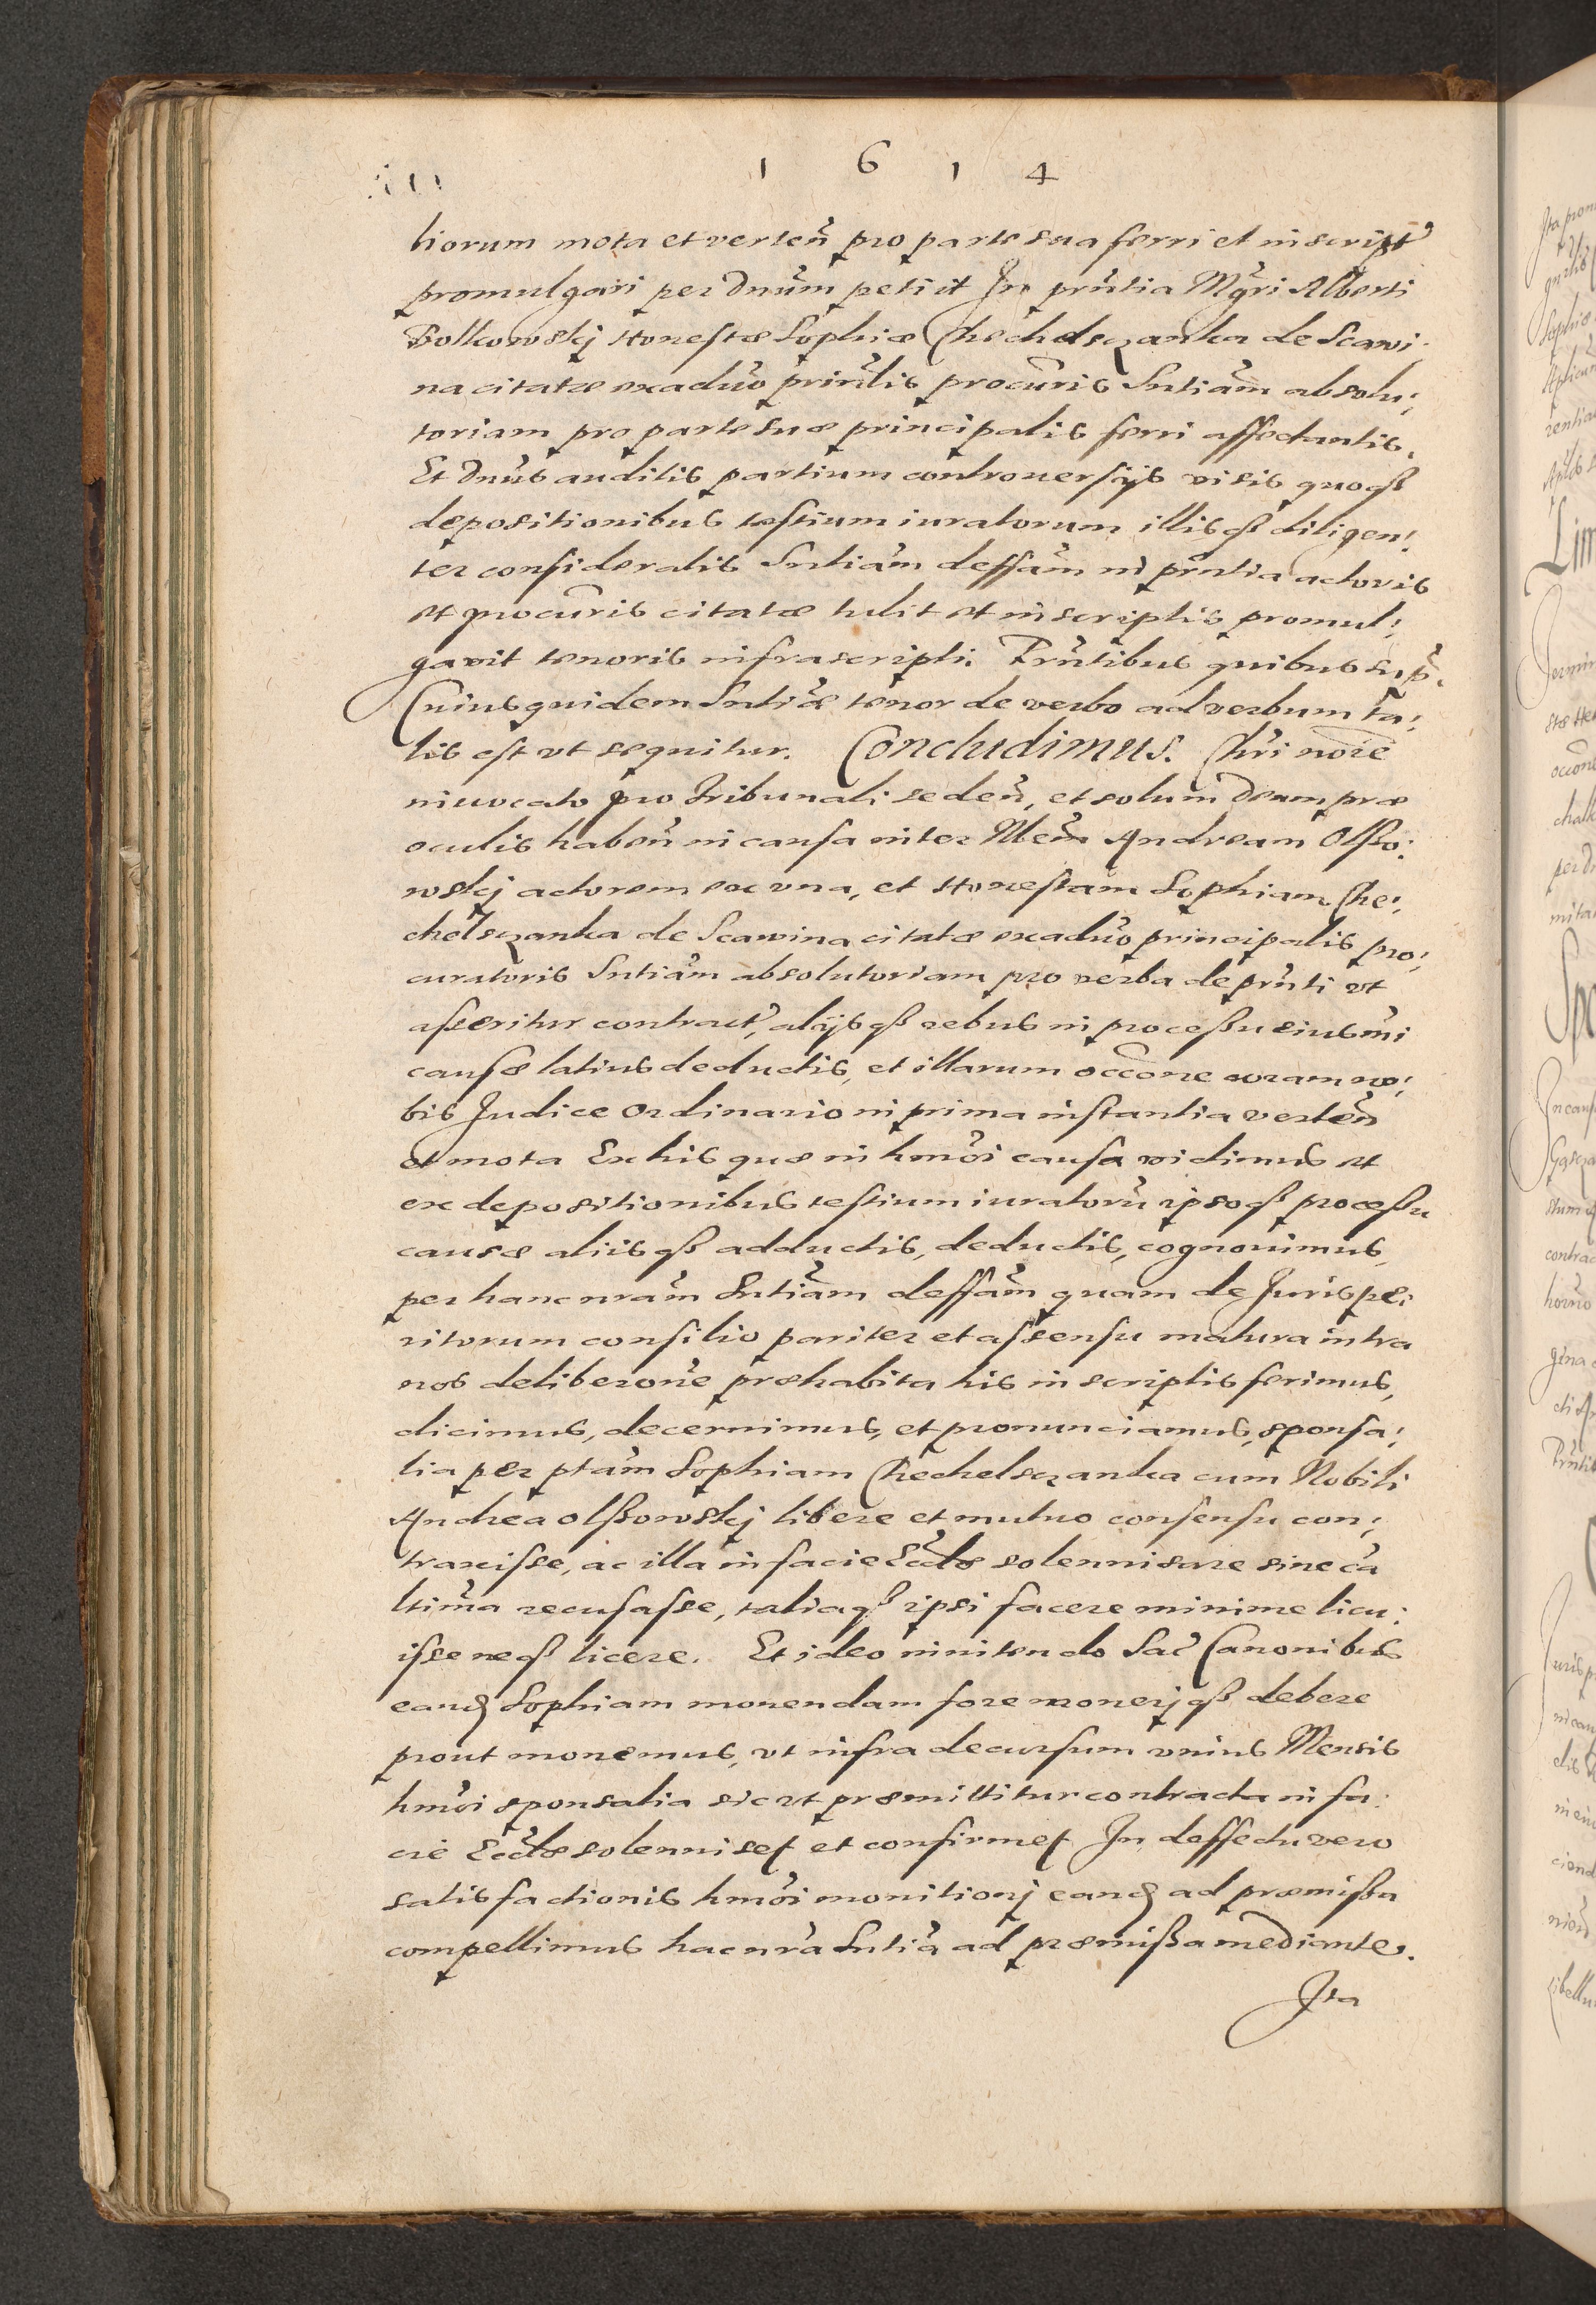 1 6 1 4
liorum mota et verteñ pro parte sua ferri et in script
promulgari per Dnum petiit In pntia Mgri Alberti
Bolkowskj Honestæ Sophiæ Chechelsczanka de Scawi:
na citatæ ex aduo prinlis procuris Sntiam absolu:
toriam pro parte suæ principalis ferri affectantis.
Et Dnus auditis partium controuersijs visis quoqȝ
depositionibus testium iuratorum illisqȝ diligen:
ter consideratis Sntiam deffam in pntia actoris
et procuris citatæ tulit et in scriptis promul:
gavit tenoris infrascripti. Pntibus quibus sup.
Cuius quidem Sntiæ tenor de verbo ad verbum ta:
lis est vt sequitur. Concludimus. Chri noie
inuocato pro Tribunali sedeñ, et solum Deum præ
oculis habeñ in causa inter Nlem Andream Olsso:
wskj actorem ex vna, et Honestam Sophiam Che:
chelsczanka de Scawina citatæ ex aduo principalis pro:
curatoris Sntiam absolutoriam pro verba de pnti vt
asseritur contract, alijsqȝ rebus in processu eiusmi
causæ latius deductis, et illarum occone coram no:
bis Judice Ordinario in prima instantia verteñ
et mota Ex his quæ in hmoi causa vidimus et
ex depositionibus testium iuratoru ipsoqȝ processu
causæ aliisqȝ adductis, deductis, cognouimus,
per hanc nram Sntiam deffam quam de Juris pe:
ritorum consilio pariter et assensu matura intra
nos deliberone præhabita his in scriptis ferimus,
dicimus, decernimus, et pronunciamus, sponsa:
lia per ptam Sophiam Chechelsczanka cum Nobili
Andrea Olssowskj libere et mutuo consensu con:
traxisse, ac illa in facie Ecclæ solennisare sine ca
ltima recusasse, taliaqȝ ipsi facere minime licu:
isse neqȝ licere. Et ideo innitendo Sac Canonibus
eand Sophiam monendam fore monerjqȝ debere
prout monemus, vt infra decursum vnius Mensis
hmoi sponsalia sic vt præmittitur contracta in fa:
cie Ecclæ solenniset et confirmet In deffectu vero
satisfactionis hmoi monitionj eand ad præmissa
compellimus hac nra Sntia ad præmissa mediante.
Ita